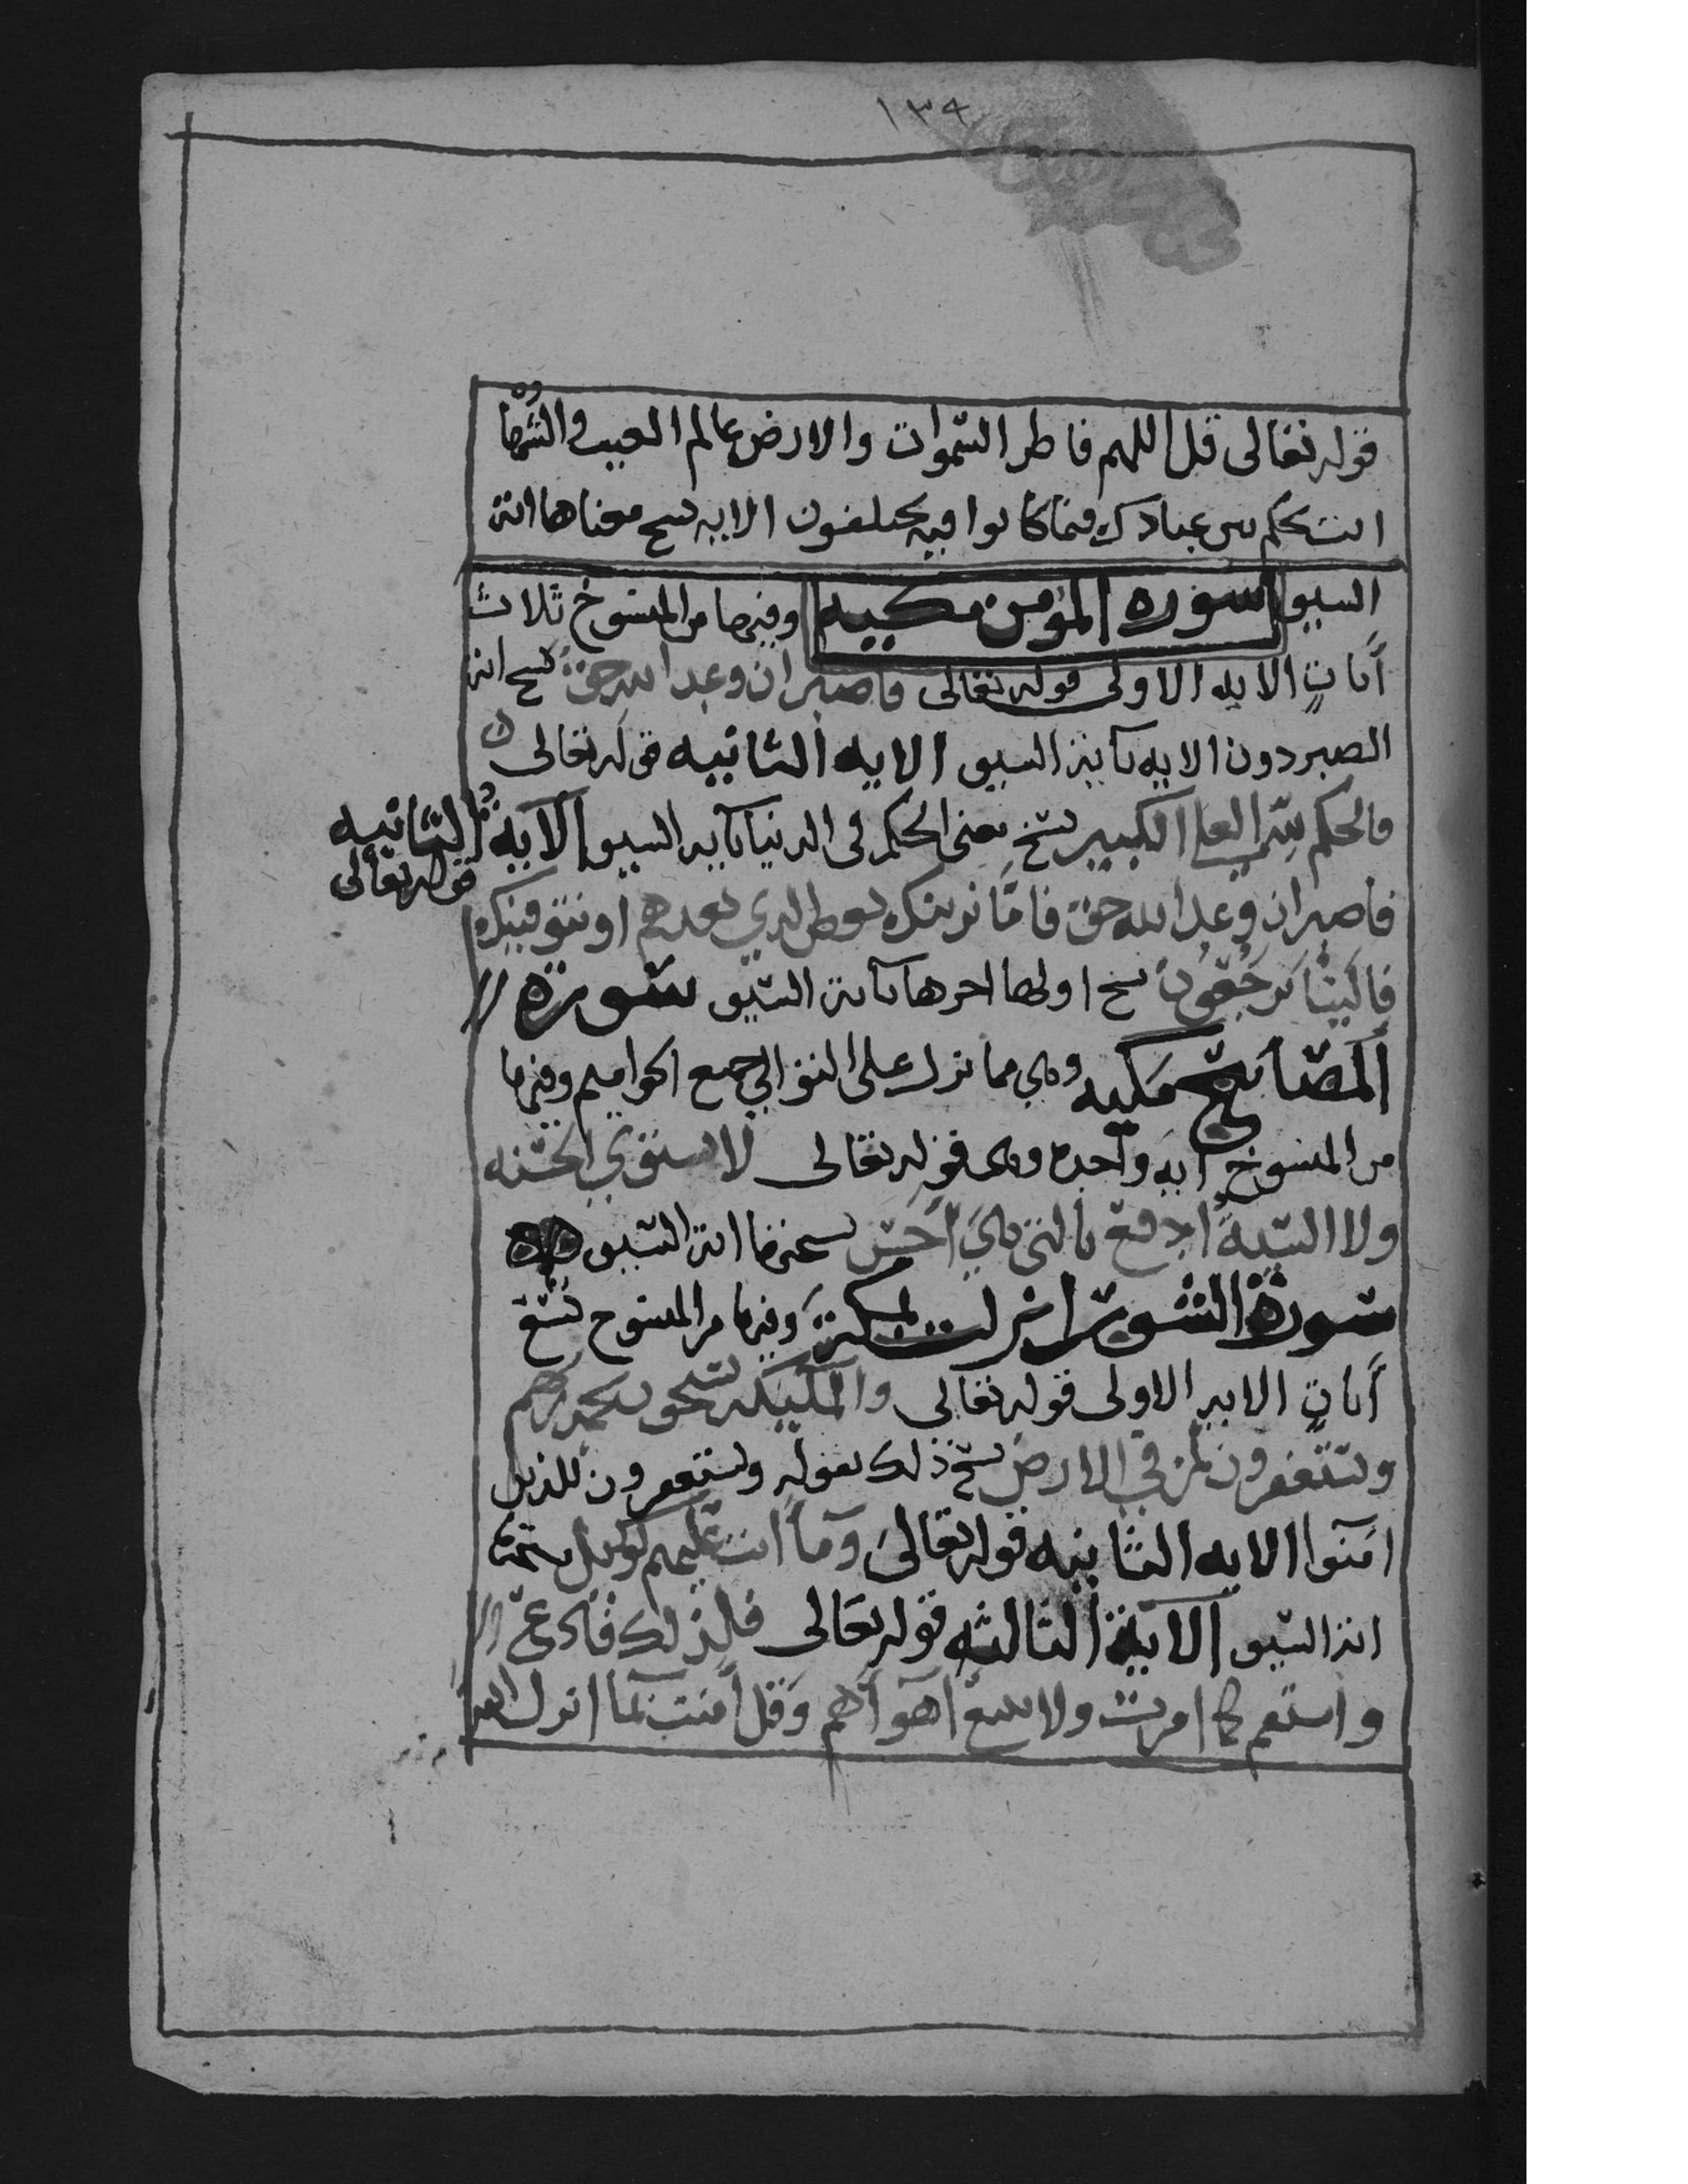 ١٣٩
قوله تعالى قل اللهم فاطر السموات والارض عالم الغيب والشهادة
انت تحكم بين عبادك فيما كانوا فيه يختلفون الايه نسخ معناها اية
السيف سورة المؤمن مكيه وفيها من المنسوخ ثلاث
أيات الايه الاولى قوله تعالى فاصبر ان وعد الله حق نسخ اية
الصبر دون الايه باية السيف الايه الثانيه قوله تعالى
فالحكم لله العلي الكبير نسخ معنى الحكم في الدنيا باية السيف الاية الثانيه
قوله تعالى
فاصبر ان وعد الله حق فامّا نرينك بعض الذي نعدهم او نتوفينك
فالينا يرجعون نسخ اولها اخرها باية السيف سورة
المصابيح مكيه وهي مما نزل على التوالي جميع الحواميم وفيها
من المنسوخ أيه واحدة وهي قوله تعالى لا تستوي الحسنه
ولا السيئة ادفع بالتي هي أحسن نسختها اية السيف
سورة الشورى انزلت بمكة وفيها من المنسوخ تسع
أيات الايه الاولى قوله تعالى والملئيكه يسبحون بحمد ربهم
ويستغفرون لمن في الارض نسخ ذلك بقوله ويستغفرون للذين
امنوا الايه الثانيه قوله تعالى وما انت عليهم بوكيل نسختها
اية السيف الاية الثالثه قوله تعالى فلذلك فادع
واستقم كما امرت ولا تتبع اهوآهم وقل أمنت بما انزل الله